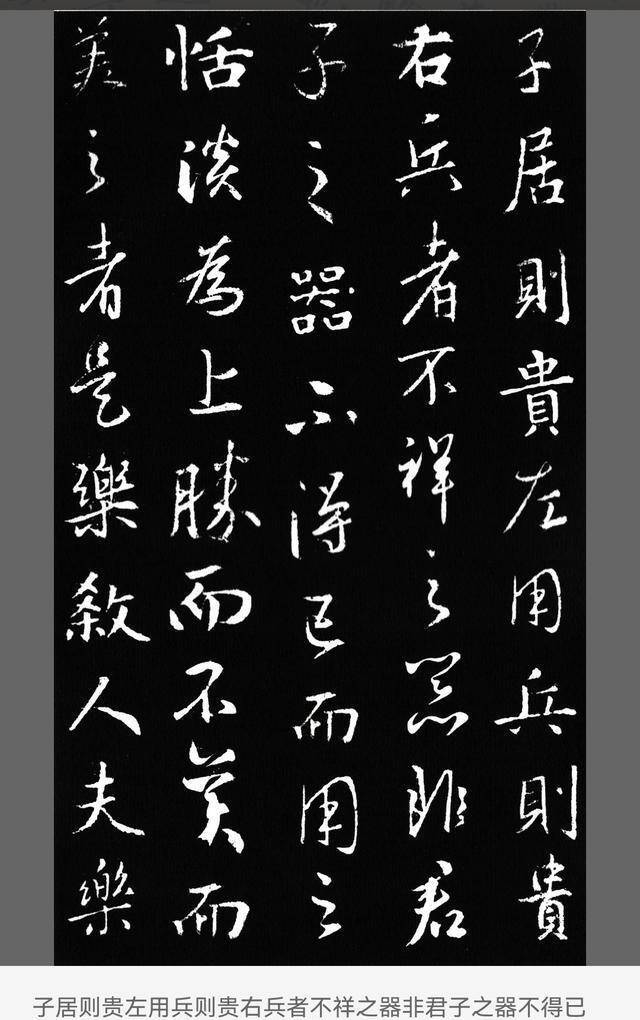 子居則貴左用兵則貴
右兵者不祥之器非君
子之器不得已而用之
恬淡為上勝而不美而
美之者是樂殺人夫樂
子居则贵左用兵则贵右兵者不祥之器非君子之器不得已